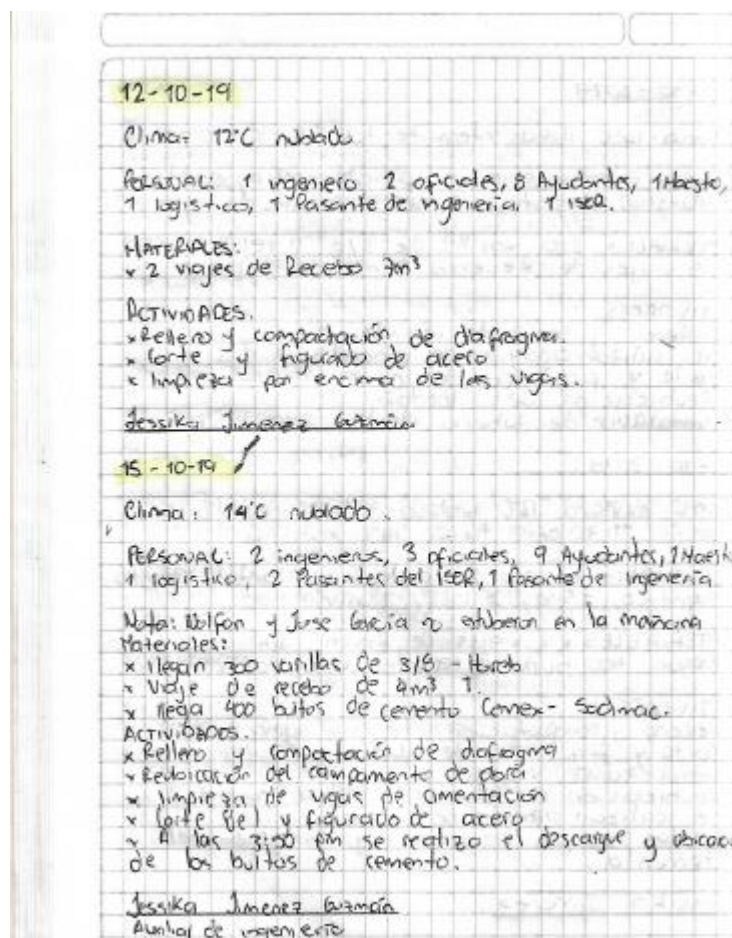 12-10-19
Clima: 12°C nublado
PERSONAL: 1 ingeniero 2 oficiales, 8 Ayudantes, 1 Maestro,
1 logistico, 1 Pasante de ingeniería, 1 ISER.
MATERIALES:
x 2 viajes de Recebo 7m³
ACTIVIDADES.
x Relleno y compactación de diafragma.
x Corte y figurado de acero
x limpieza por encima de las vigas.
Jessika Jimenez Guzmán
15-10-19
Clima: 14°C nublado.
PERSONAL: 2 ingenieros, 3 oficiales, 9 Ayudantes, 1 Maestro
1 logistico, 2 Pasantes del ISER, 1 Pasante de ingeniería
Nota: y Jose García no estuberon en la mañana
Materiales:
x llegan 300 varillas de 3/8 -
x Viaje de recebo de 4m³ 1.
x llega 400 bultos de cemento Cemex - Sodimac.
ACTIVIDADES.
x Relleno y compactación de diafragma
x Reubicación del campamento de obra
x limpieza de vigas de cimentación
x Corte y figurado de acero
x A las 3:50 pm se realizo el descargue y ubicac
de los bultos de cemento.
Jessika Jimenez Guzmán
Auxiliar de ingeniería